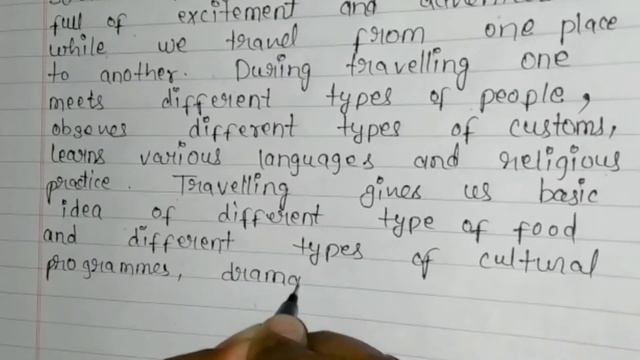 full of excitement and
while we travel from one place
to another. During travelling one
meets different types of people,
obseves different types of customs,
learns various languages and religious
practice. Travelling gives us basic
idea of different type of food
and different types of cultural
programmes, drama